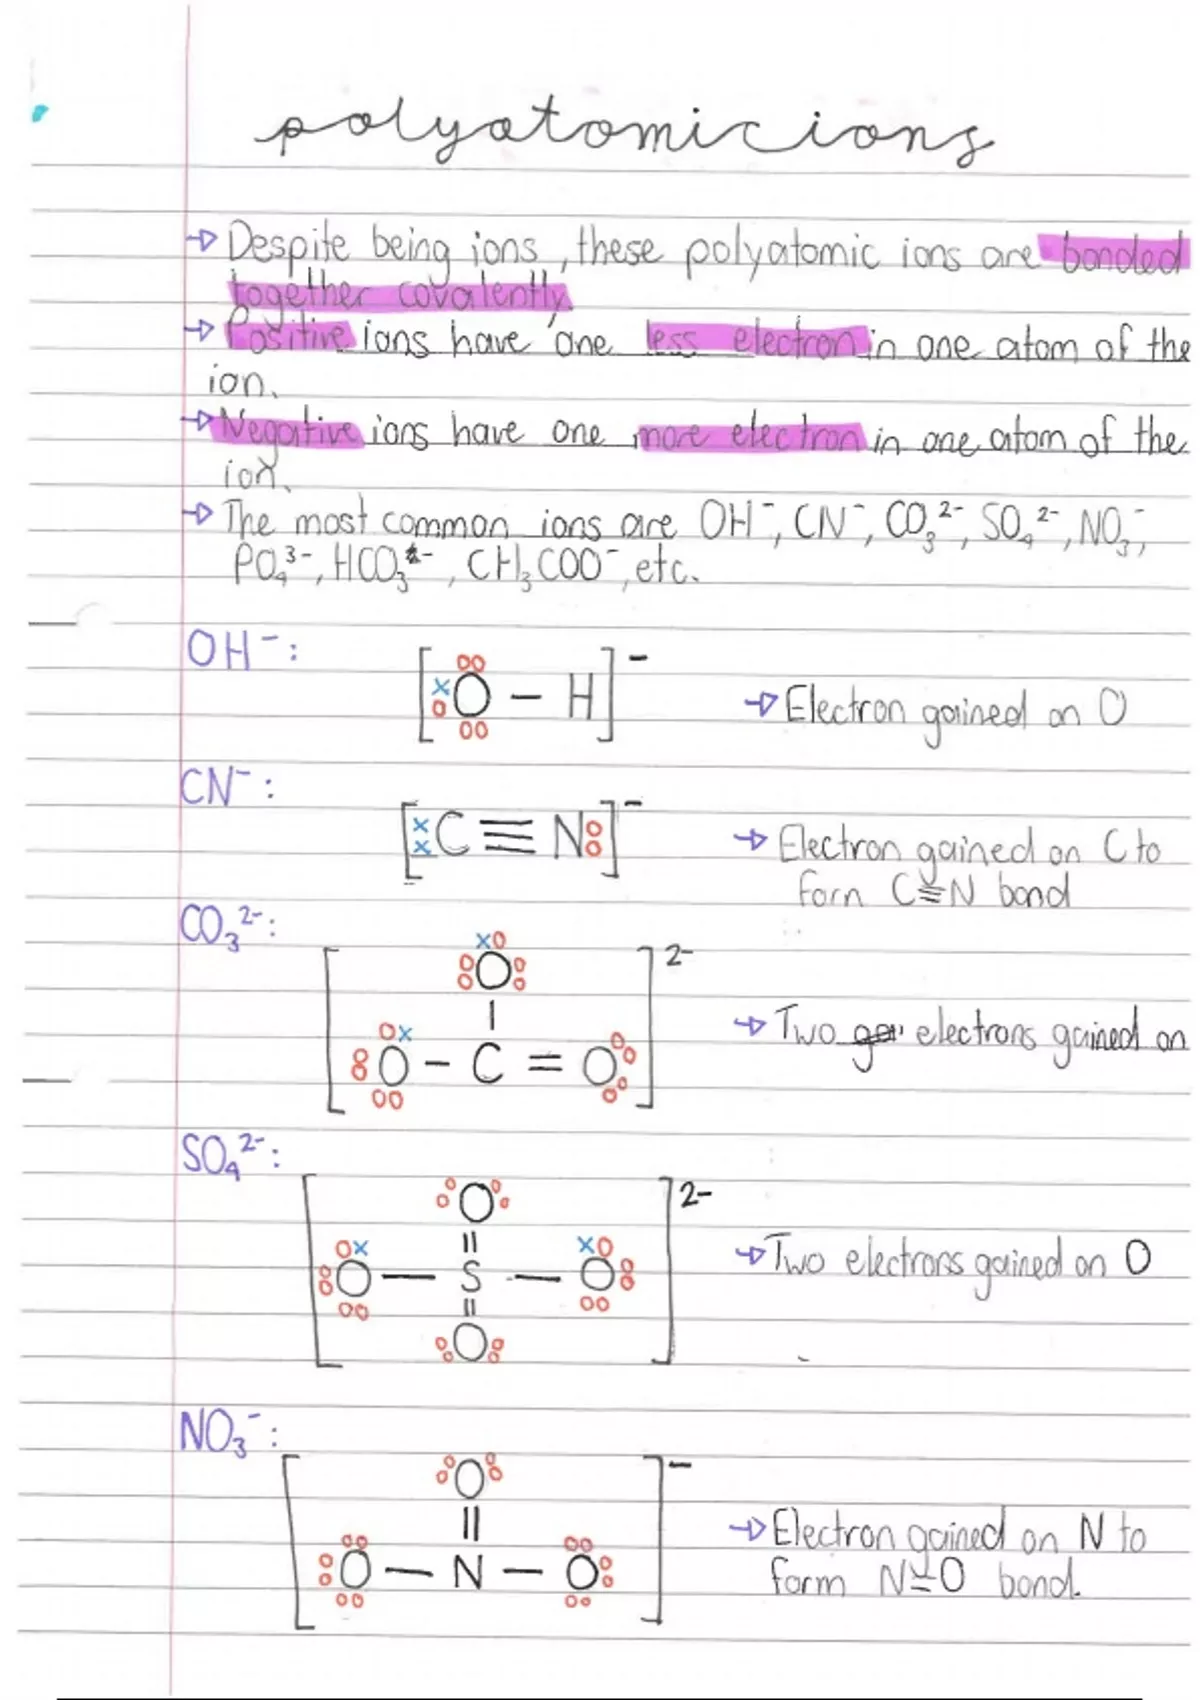 polyatomic ions
→ Despite being ions, these polyatomic ions are bonded
together covalently.
→ Positive ions have one less electron in one atom of the
ion.
→ Negative ions have one more electron in one atom of the
ion.
→ The most common ions are OH⁻, CN⁻, CO₃²⁻, SO₄²⁻, NO₃⁻,
PO₄³⁻, HCO₃⁻, CH₃COO⁻, etc.
OH⁻:
[O – H]⁻ → Electron gained on O
CN⁻:
[C ≡ N]⁻ → Electron gained on C to
form C≡N bond
CO₃²⁻:
O 2-
O – C = O → Two electrons gained on
SO₄²⁻:
O 2-
O – S – O → Two electrons gained on O
O
NO₃⁻:
O –
O – N – O → Electron gained on N to
form N=O bond.